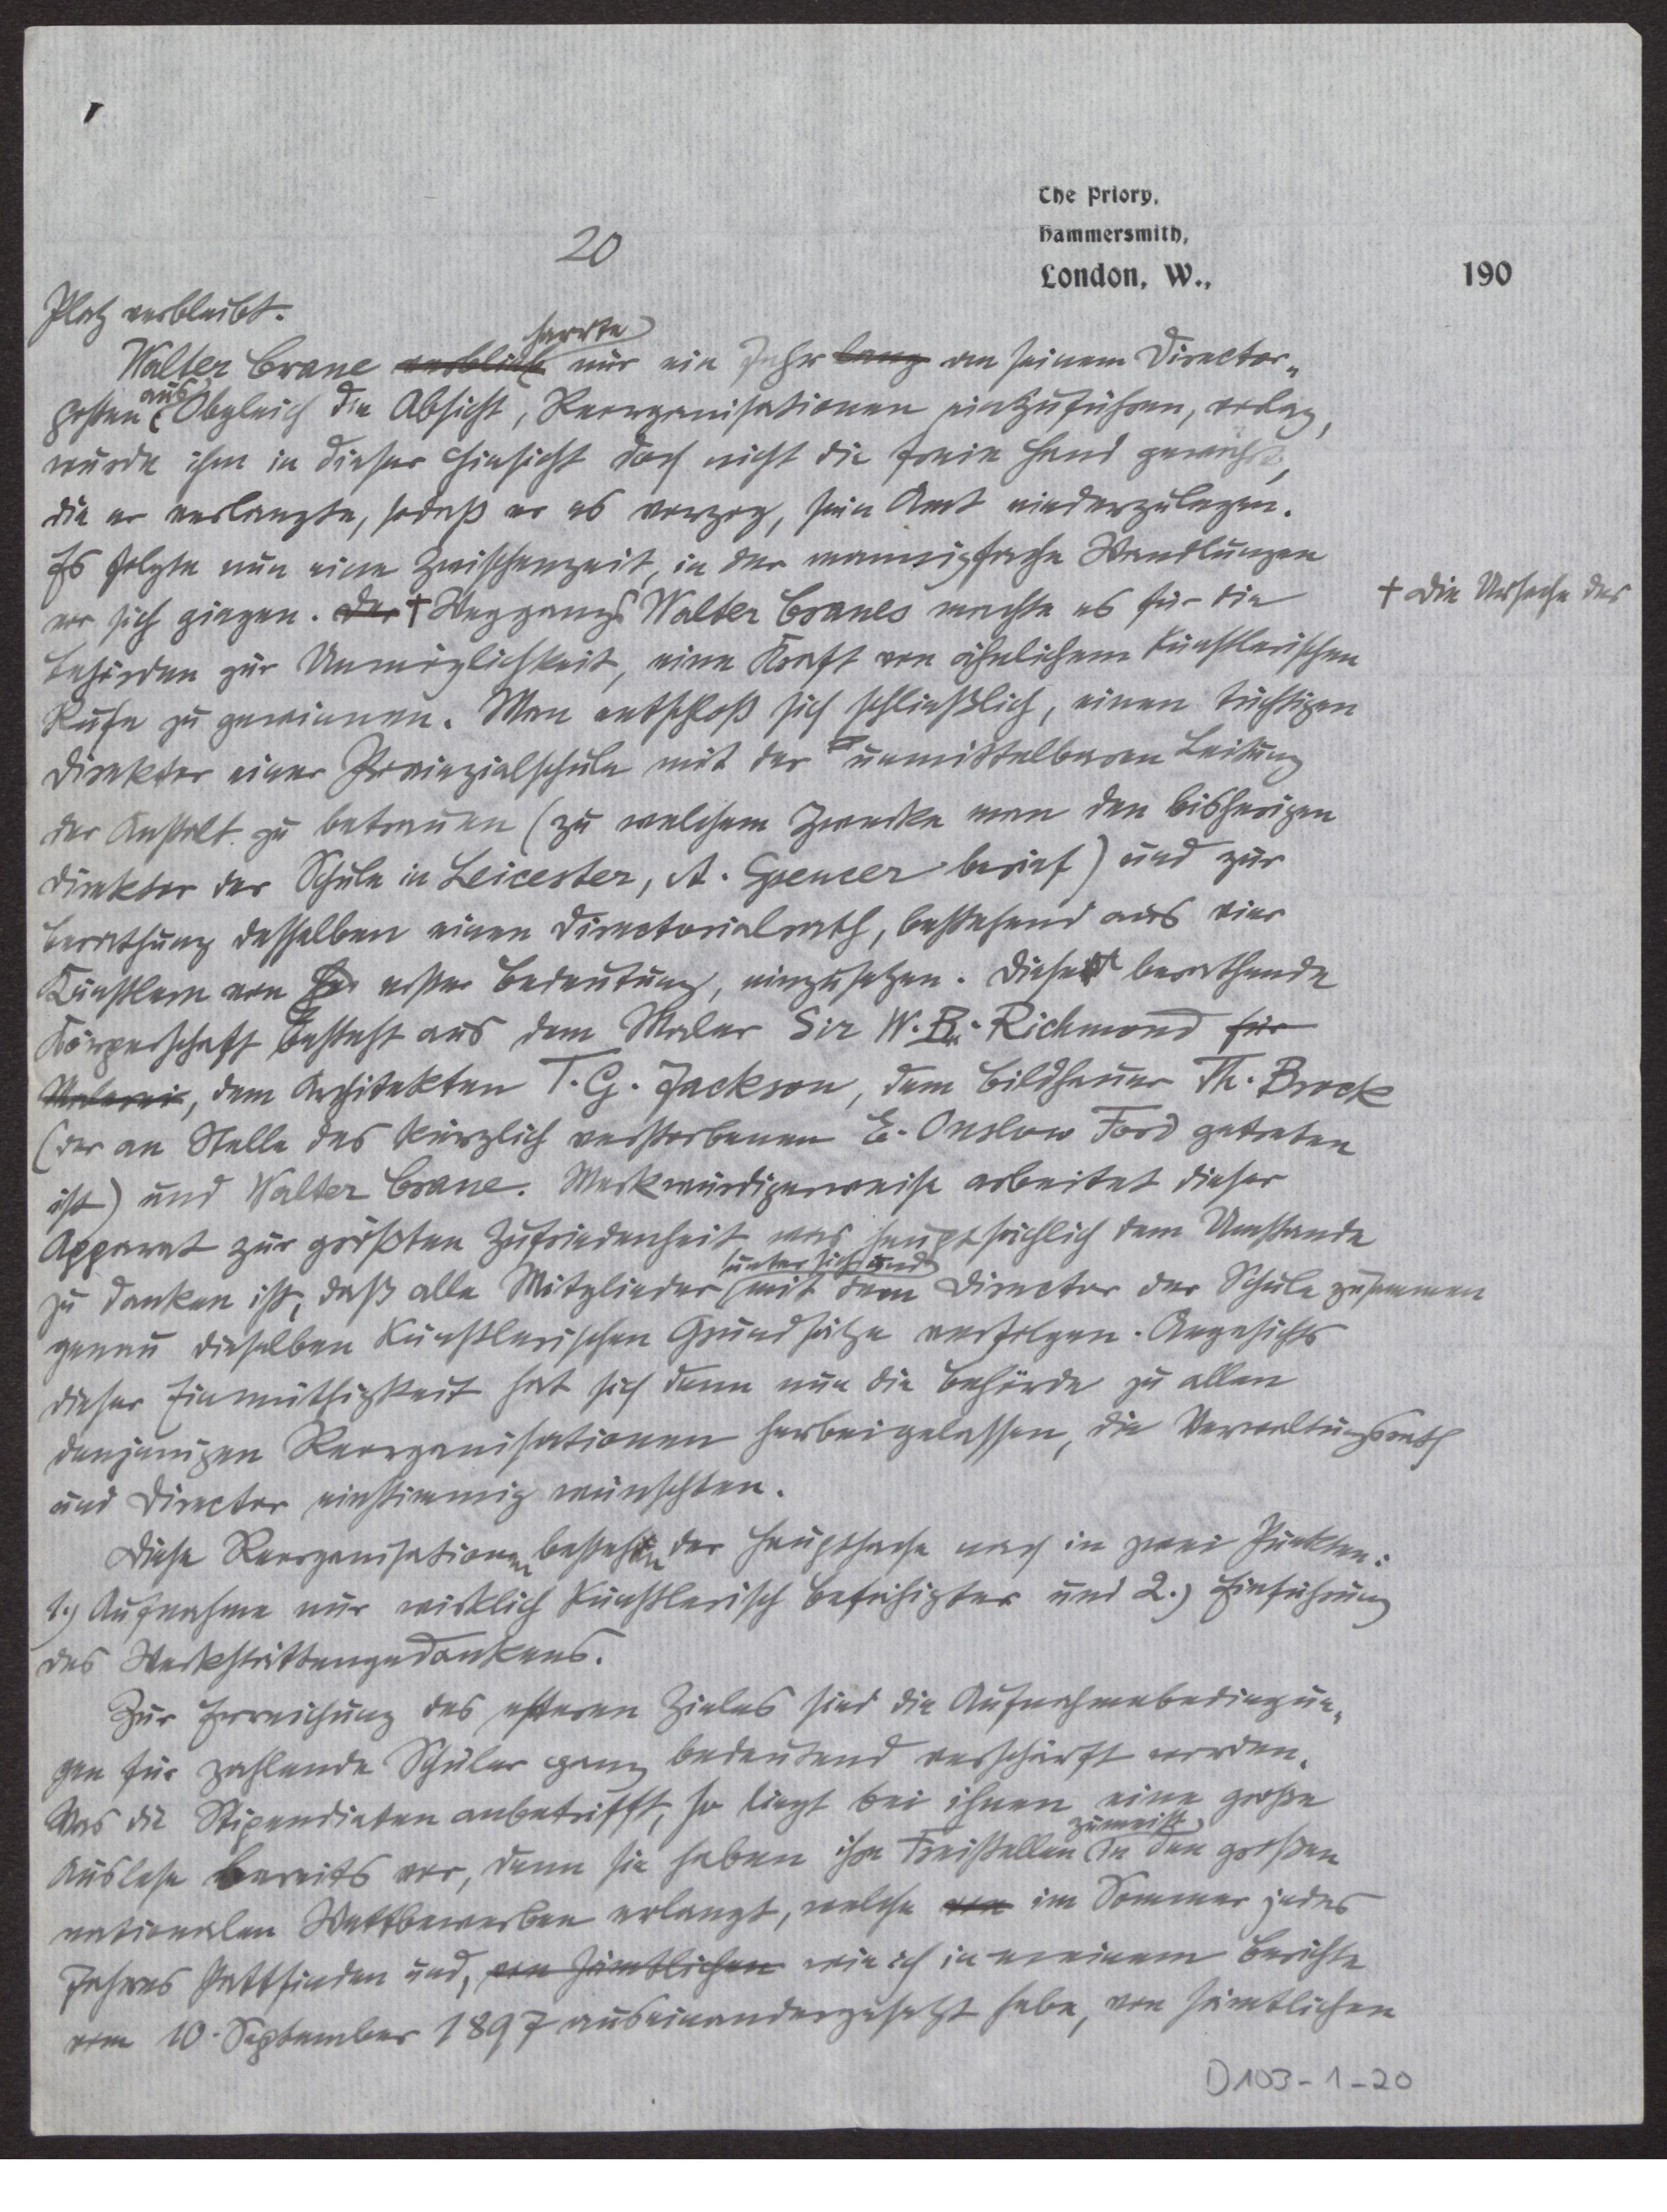 The Priory,
Hammersmith,
London, W.,
190
20
Platz verbleibt.
Walter Crane verblieb harrte nur ein Jahr lang an seinem Director-
posten aus. Obgleich die Absicht, Reorganisationen einzuführen, vorlag,
wurde ihm in dieser Hinsicht doch nicht die freie Hand gewährt,
die er verlangte, sodaß er es vorzog, sein Amt niederzulegen.
Es folgte nun eine Zwischenzeit, in der mannigfache Wandlungen
vor sich gingen. Der † Weggangs Walter Cranes machte es für die
† Die Ursache des
Behörden zur Unmöglichkeit, eine Kraft von ähnlichem künstlerischen
Rufe zu gewinnen. Man entschloß sich schließlich, einen tüchtigen
Direktor einer Provinzialschule mit der unmittelbaren Leitung
der Anstalt zu betrauen (zu welchem Zwecke man den bisherigen
Direktor der Schule in Leicester, A. Spencer berief) und zur
Berathung desselben einen Directorialrath, bestehend aus vier
Künstlern von erster Bedeutung, einzusetzen. Diese berathende
Körperschaft besteht aus dem Maler Sir W. B. Richmond für
Malerei, dem Architekten T. G. Jackson, dem Bildhauer Th. Brock
(der an Stelle des kürzlich verstorbenen E. Onslow Ford getreten
ist) und Walter Crane. Merkwürdigerweise arbeitet dieser
Apparat zur größten Zufriedenheit was hauptsächlich dem Umstande
zu danken ist, daß alle Mitglieder unter sich und mit dem Director der Schule zusammen
genau dieselben künstlerischen Grundsätze verfolgen. Angesichts
dieser Einmüthigkeit hat sich denn nun die Behörde zu allen
denjenigen Reorganisationen herbeigelassen, die Verwaltungsrath
und Director einstimmig wünschten.
Diese Reorganisationen bestehen der Hauptsache nach in zwei Punkten:
1.) Aufnahme nur wirklich künstlerisch Befähigter und 2.) Einführung
des Werkstättengedankens.
Zur Erreichung des ersteren Zieles sind die Aufnahmebedingun-
gen für zahlende Schüler ganz bedeutend verschärft worden.
Was die Stipendiaten anbetrifft, so liegt bei ihnen eine große
Auslese bereits vor, denn sie haben ihre Freistellen zumeist in den großen
nationalen Wettbewerben erlangt, welche von im Sommer jedes
Jahres stattfinden und, von sämtlichen wie ich in meinem Berichte
vom 10. September 1897 auseinandergesetzt habe, von sämtlichen
D103-1-20